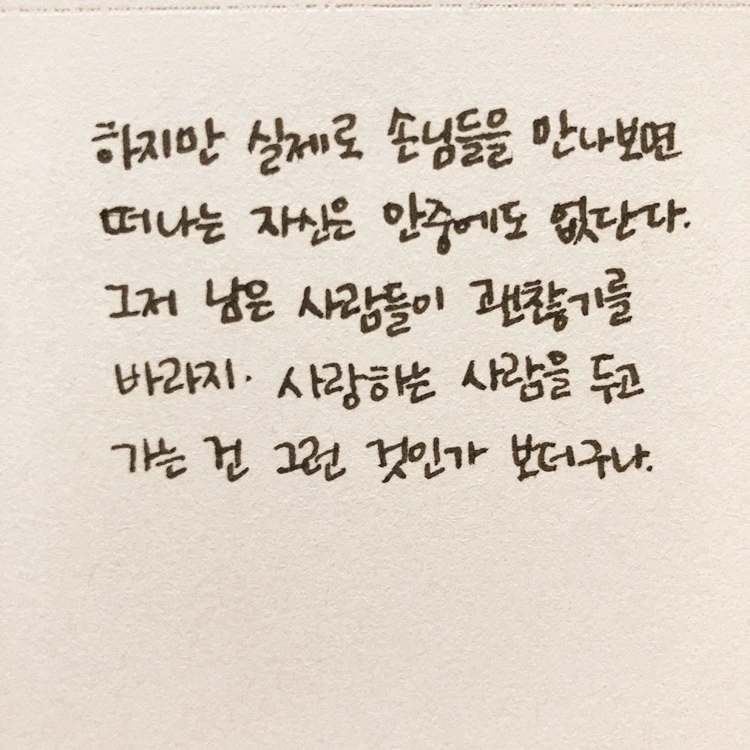 하지만 실제로 손님들을 만나보면
떠나는 자신은 안중에도 없단다.
그저 남은 사람들이 괜찮기를
바라지. 사랑하는 사람을 두고
가는 건 그런 것인가 보더구나.